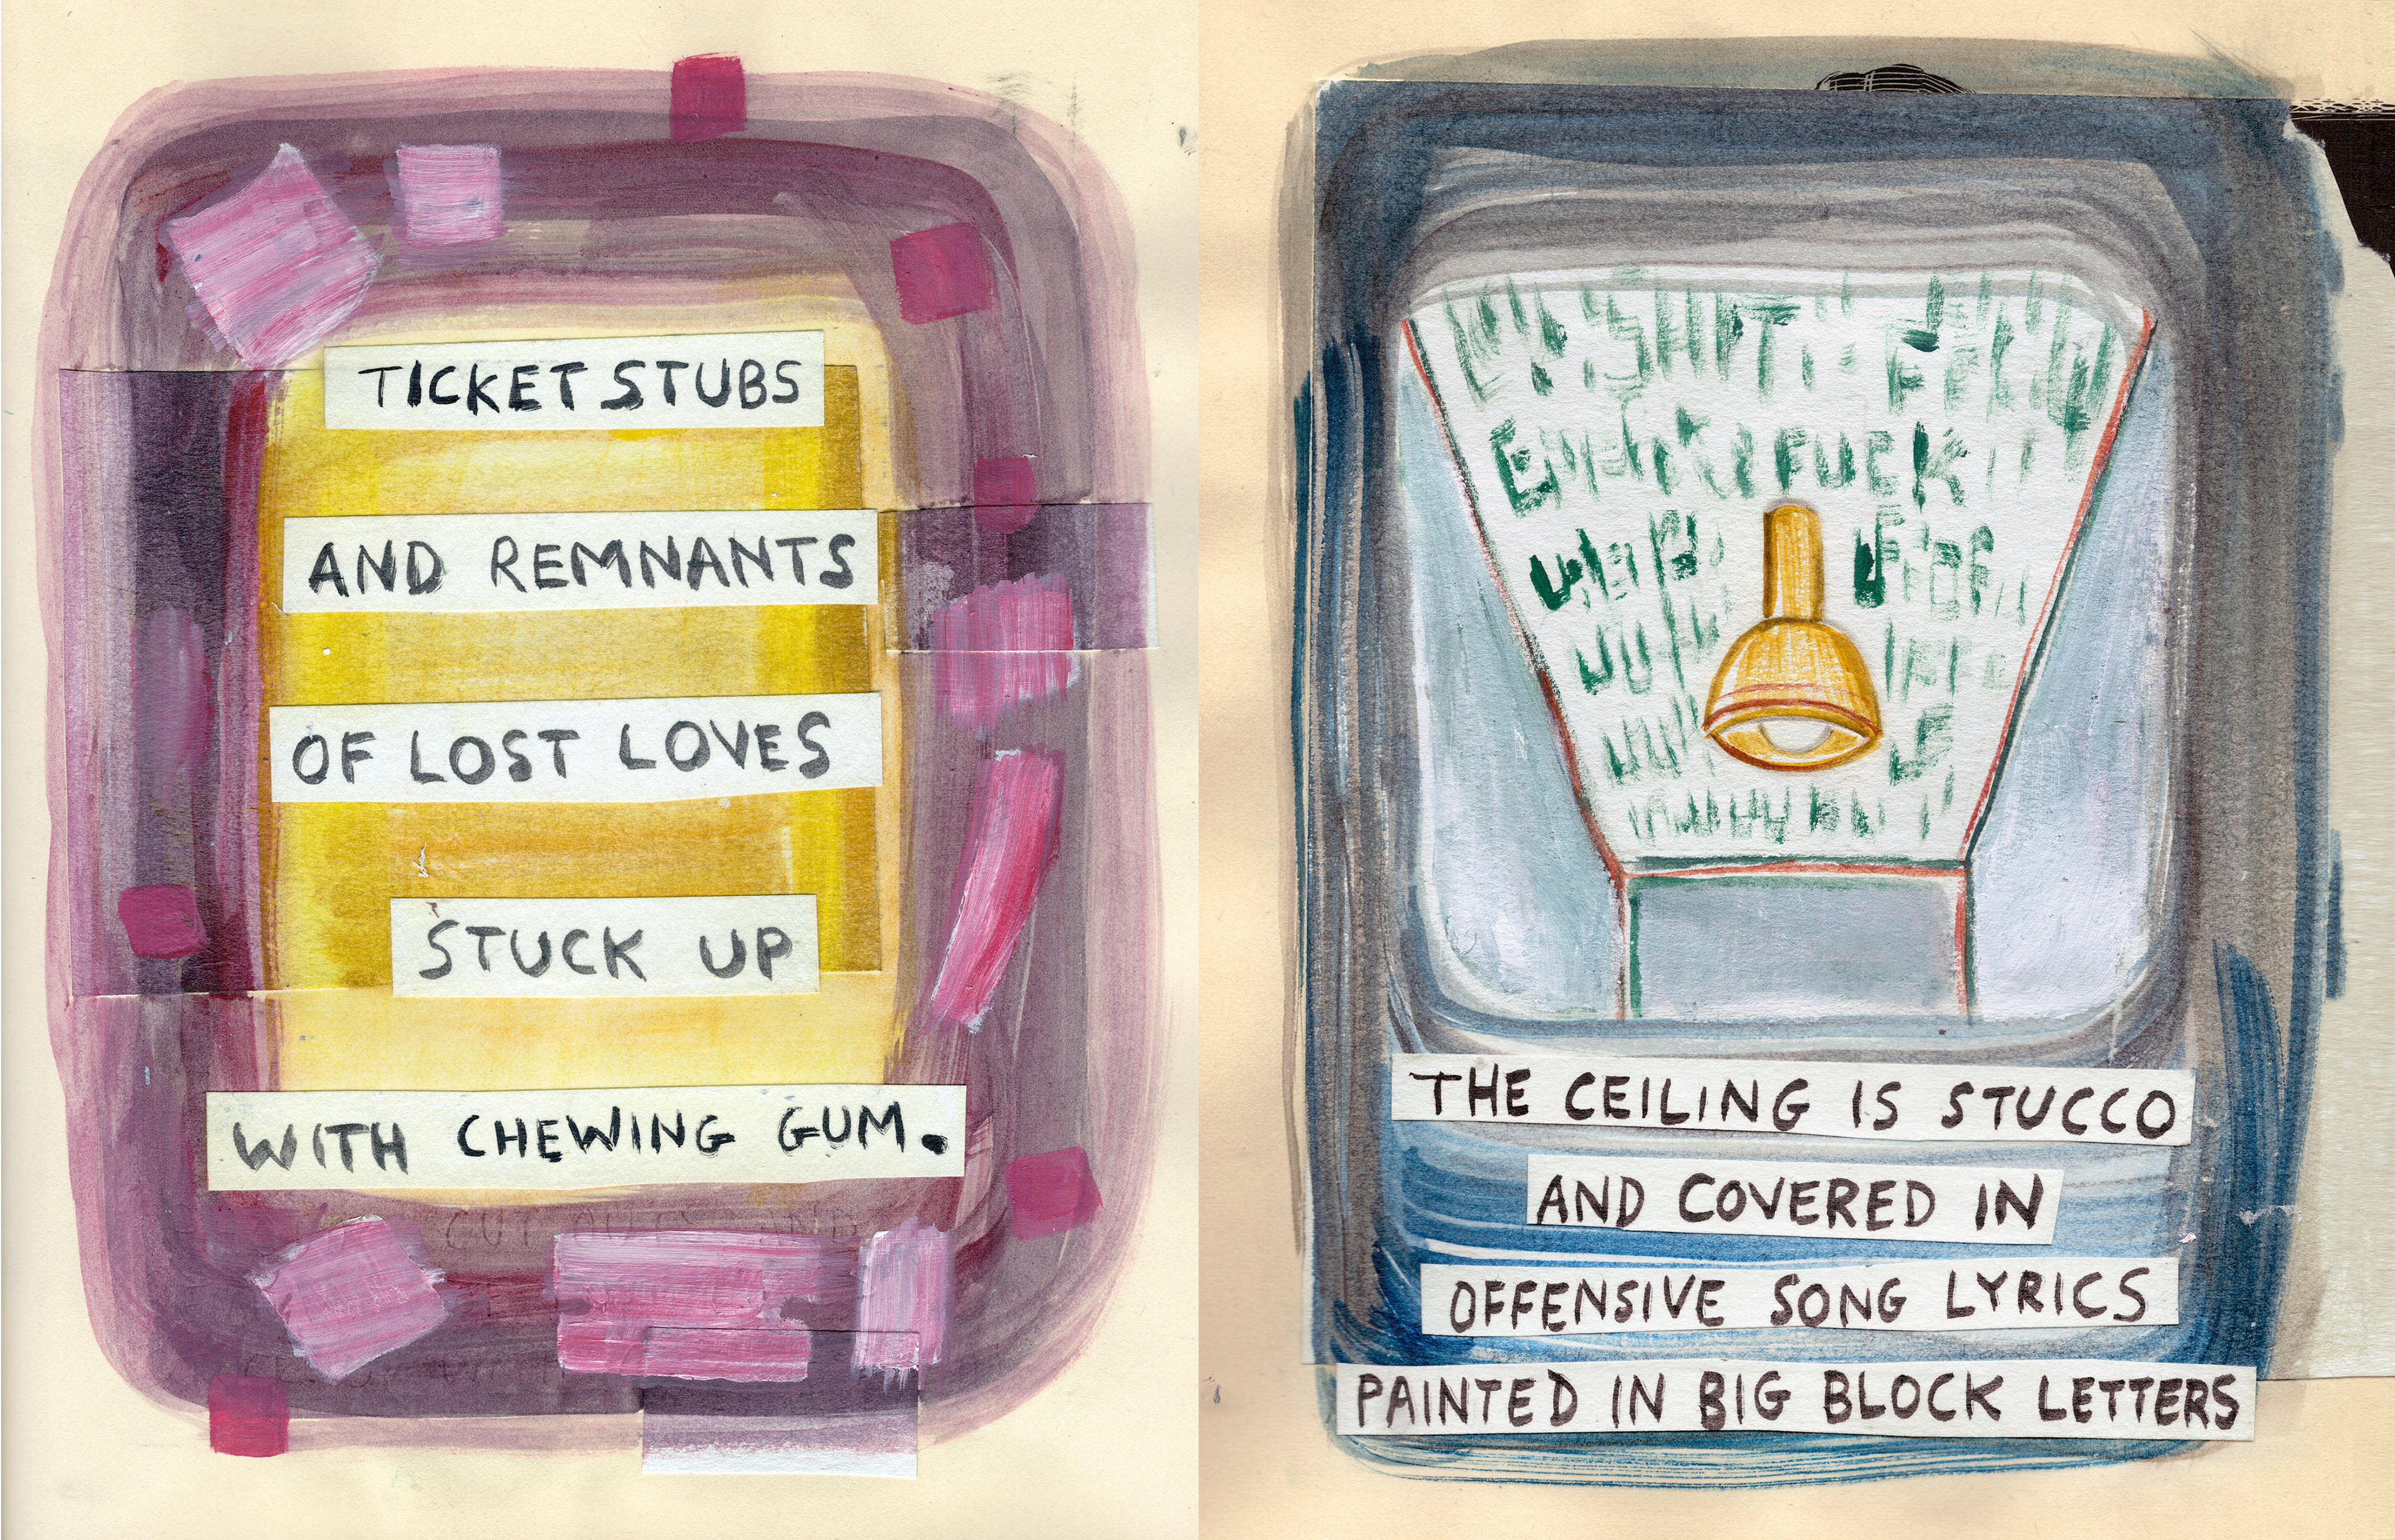 TICKET STUBS
AND REMNANTS
OF LOST LOVES
STUCK UP
WITH CHEWING GUM.
CUT OUTS AND
FUCK
THE CEILING IS STUCCO
AND COVERED IN
OFFENSIVE SONG LYRICS
PAINTED IN BIG BLOCK LETTERS